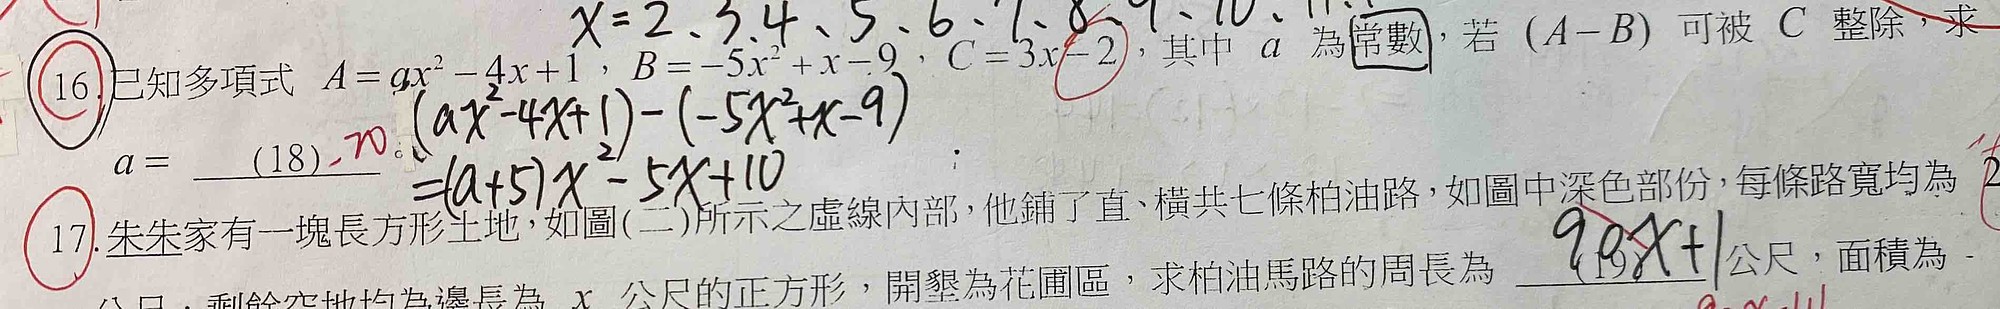 x=2、3、4、5、6、7、8、9、10、11、
16.已知多項式 A=ax²-4x+1，B=-5x²+x-9，C=3x-2，其中 a 為常數，若 (A-B) 可被 C 整除，求
(ax²-4x+1)-(-5x²+x-9)
a= (18) -20。
=(a+5)x²-5x+10
17.朱朱家有一塊長方形土地，如圖(二)所示之虛線內部，他鋪了直、橫共七條柏油路，如圖中深色部份，每條路寬均為 2
公尺，剩餘空地均為邊長為 x 公尺的正方形，開墾為花圃區，求柏油馬路的周長為 (19) 公尺，面積為